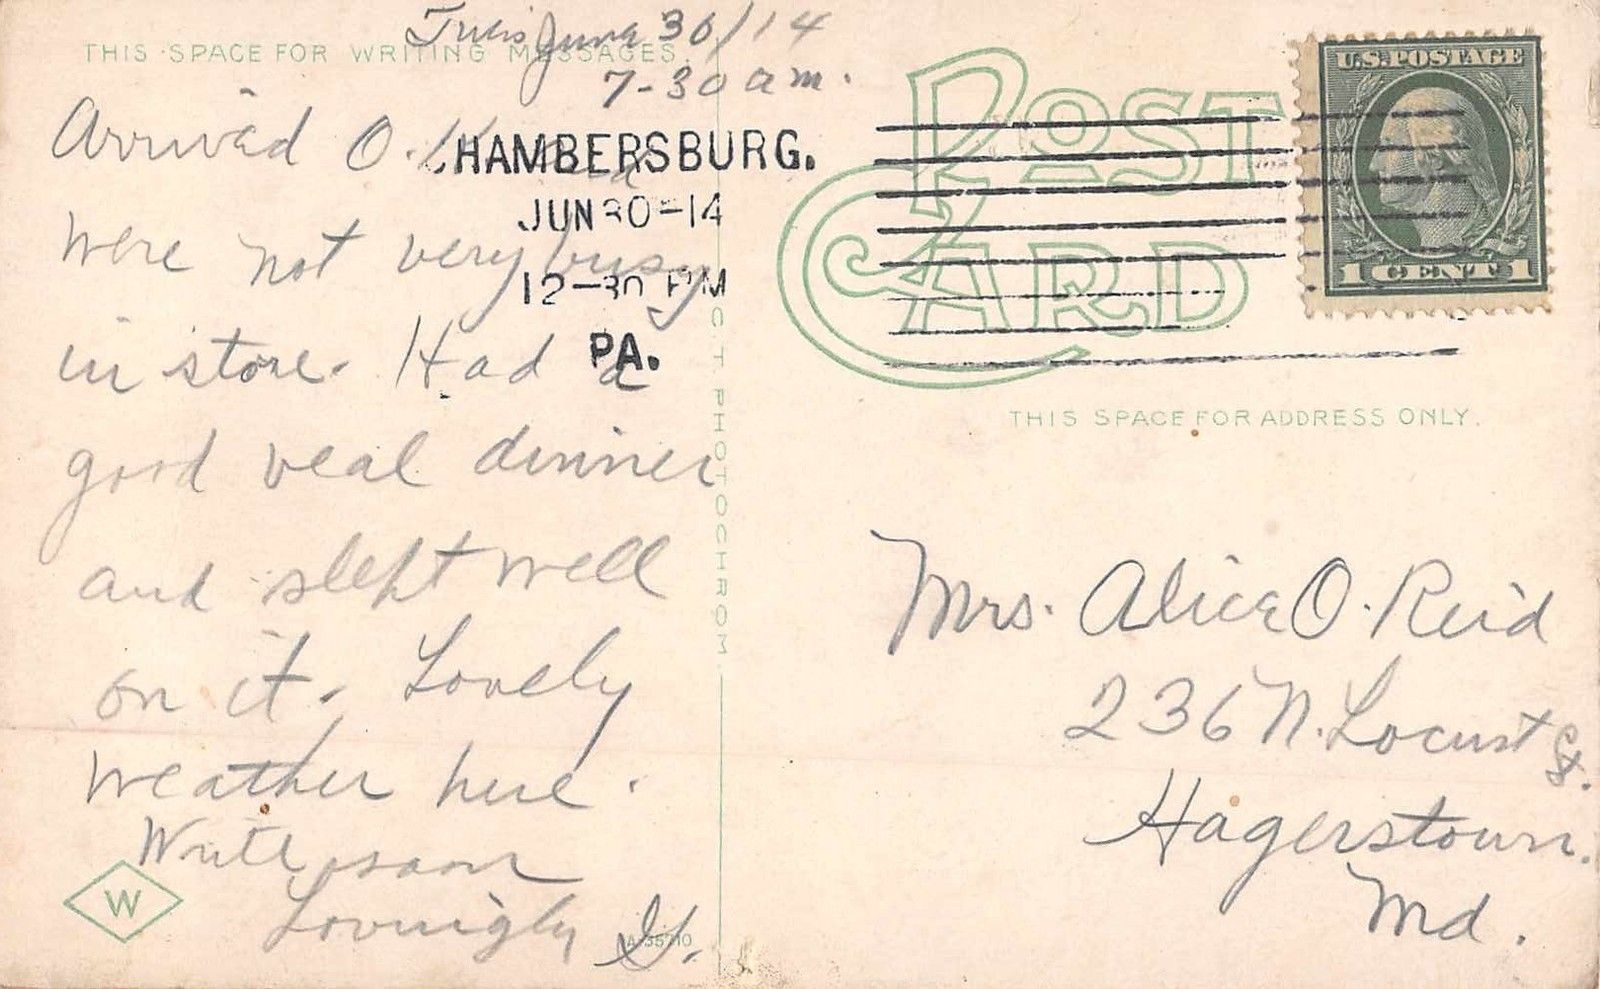 Tues June 30/14
THIS SPACE FOR WRITING MESSAGES
7-30 am.
Arrived O.K. and
were not very busy
in store. Had a
good veal dinner
and slept well
on it. Lovely
weather here.
Write soon
Lovingly G.
W
A-35710
C. T. PHOTOCHROM
CHAMBERSBURG.
JUN 30-14
12-30 PM
PA.
POST CARD
U.S. POSTAGE
1 CENT 1
THIS SPACE FOR ADDRESS ONLY.
Mrs. Alice O. Reid
236 N. Locust St.
Hagerstown.
Md.